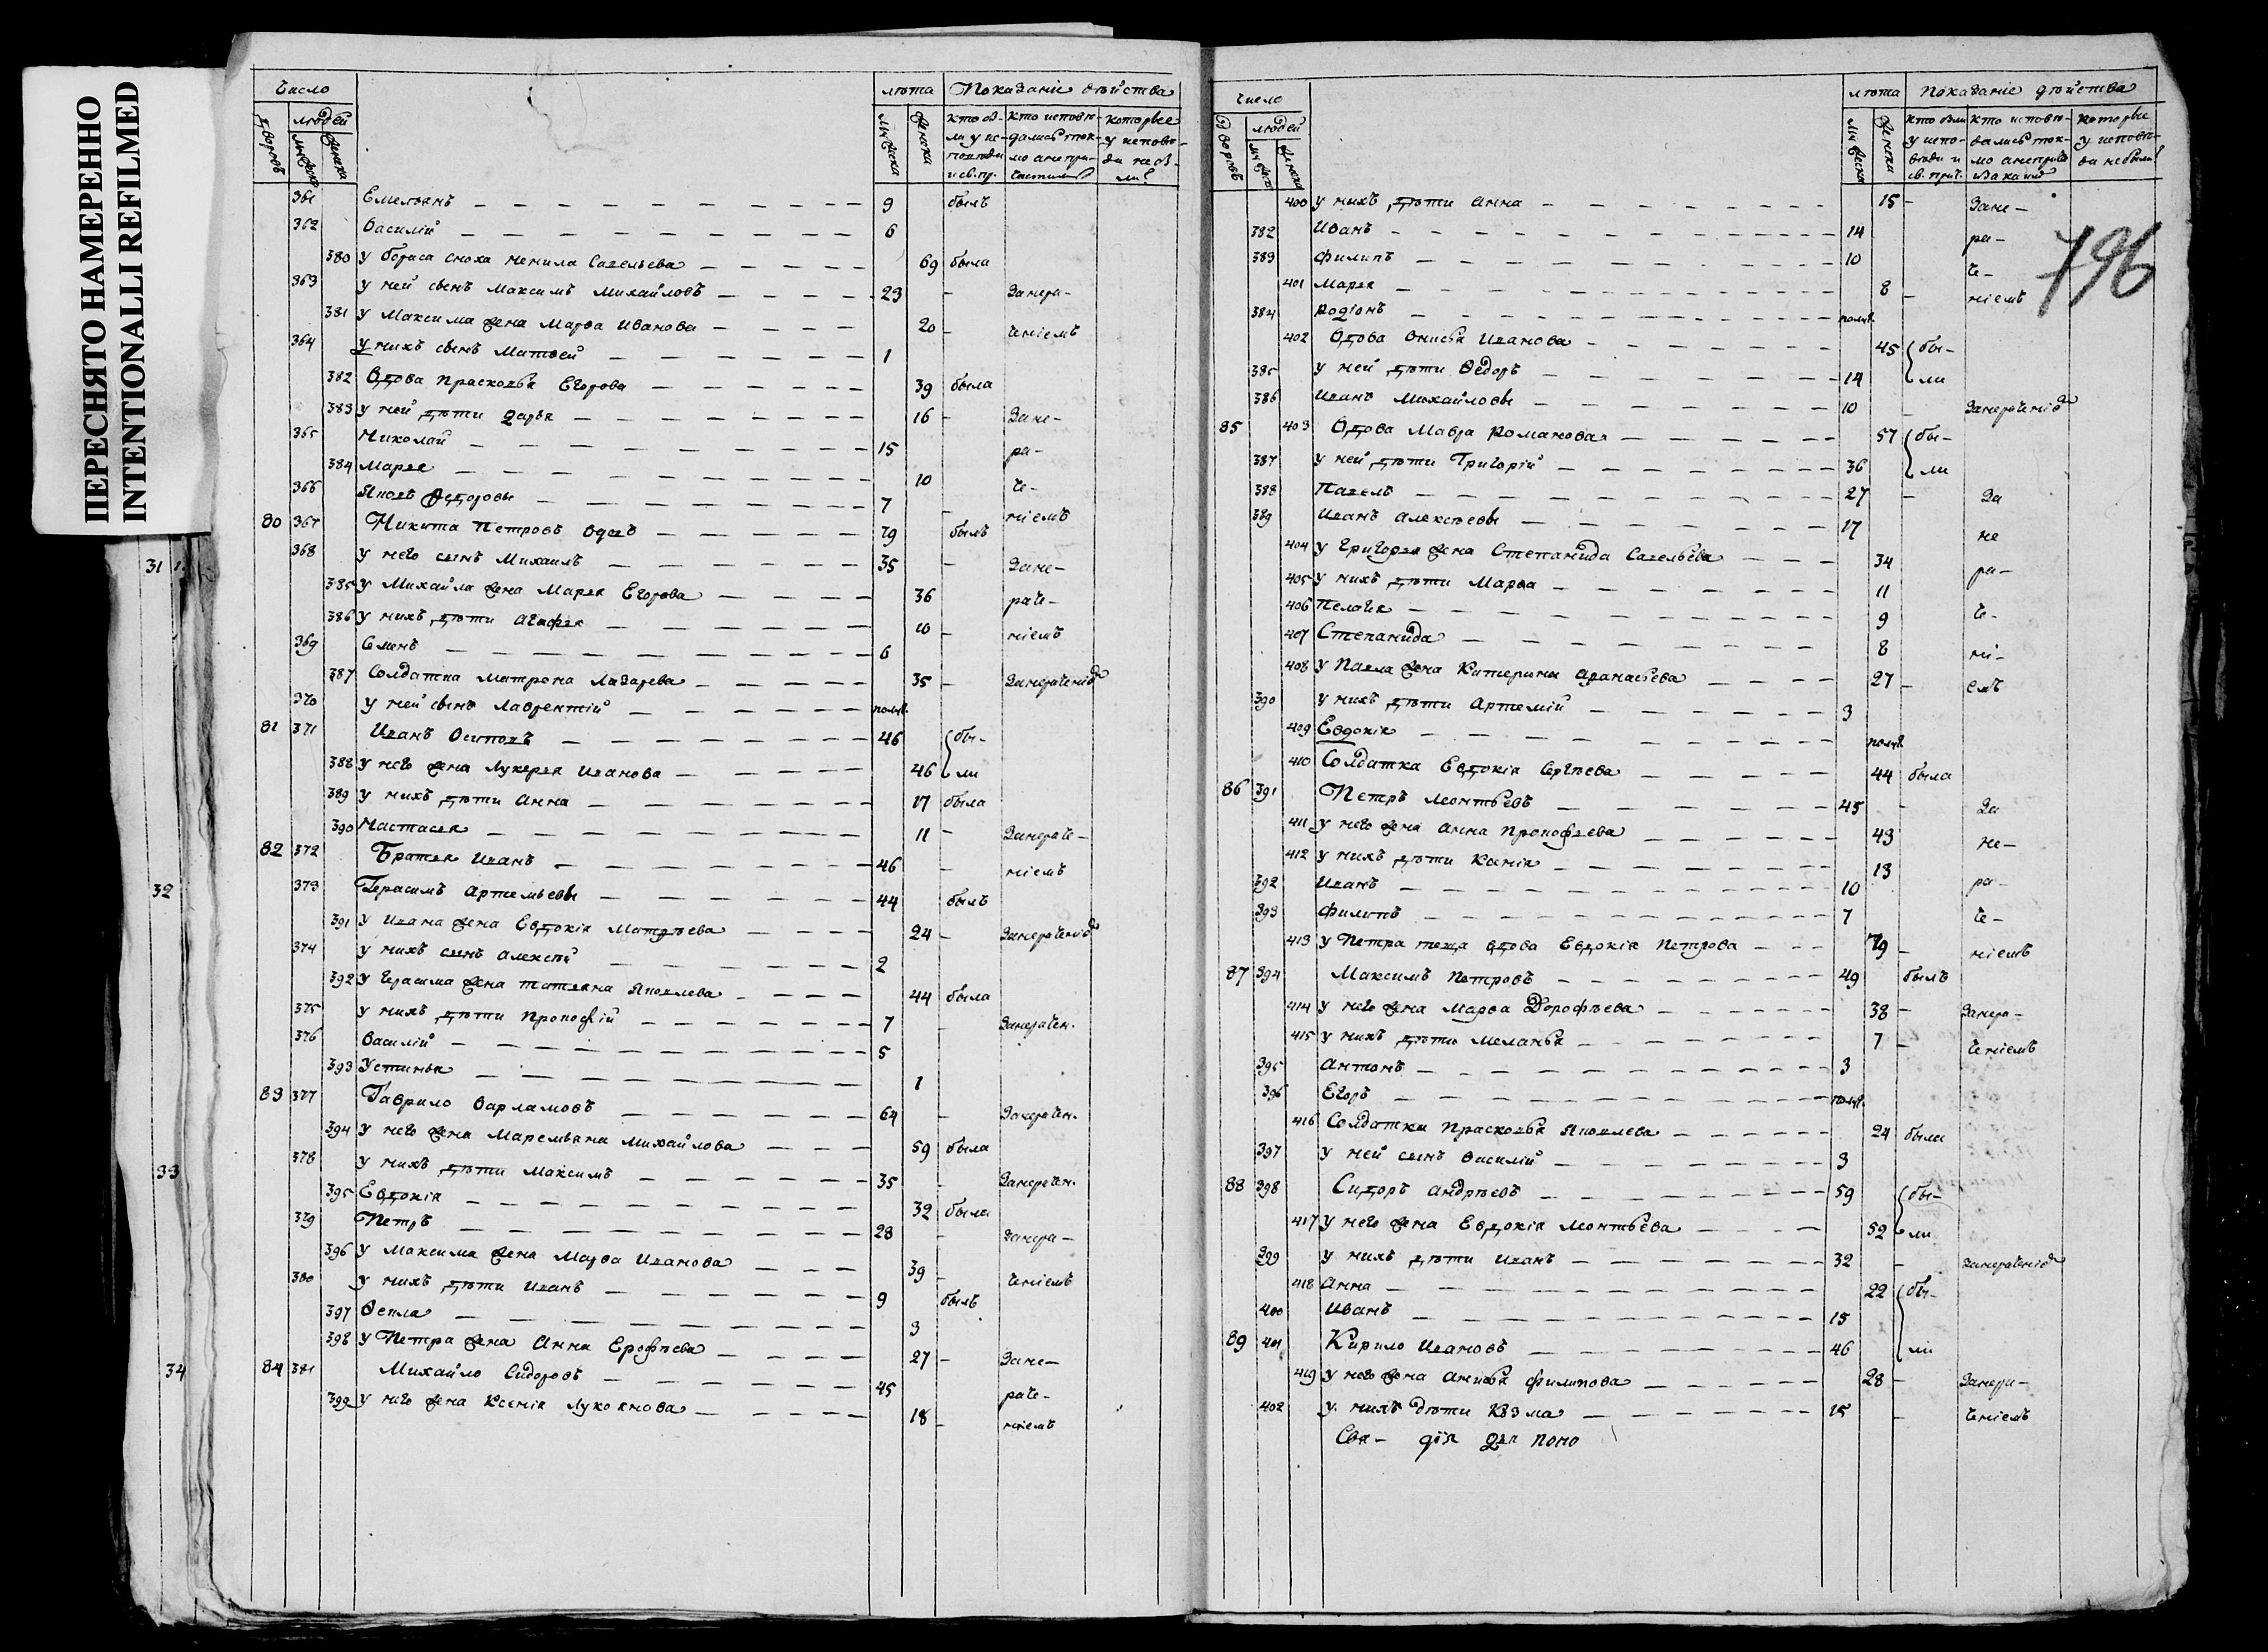 ПЕРЕСНЯТО НАМЕРЕННО
INTENTIONALLI REFILMED
31
32
33
34
Число лѣта Показаніе дѣйства
дворовъ людей мужеска женска кто бы- кто исповѣ- которые
ли у ис- дались ток- у исповѣ-
повѣди мо а не при- ди не бы-
и св. пр. частились ли?
361 Емельянъ 9 былъ
362 Василій 6
380 у бориса сноха ненила Савельева 69 была
363 у ней сынъ Максимъ Михайловъ 23 - Занера-
381 у Максима жена Марѳа Иванова 20 - ченіемъ
364 у нихъ сынъ Матвей 1
382 Вдова Прасковья Егорова 39 была
383 у ней дѣти Дарья 16 - Зане-
365 Николай 15 ра-
384 Марья 10 че-
366 Яковъ Ѳедоровы 7 - ніемъ
80 367 Никита Петровъ вдовъ 79 былъ
368 у него сынъ Михаилъ 35 - Зане-
385 у Михайла жена Марья Егорова 36 раче-
386 у нихъ дѣти Агафья 10 - ніемъ
369 Семенъ 6
387 Солдатка Матрона Лазарева 35 - Занераченіе
370 у ней сынъ Лаврентій полуг.
81 371 Иванъ Осиповъ 46 бы-
388 у него жена Лукерья Иванова 46 ли
389 у нихъ дѣти Анна 17 была
390 Настасья 11 - Занераче-
82 372 Братья Иванъ 46 - ніемъ
373 Герасимъ Артемьевы 44 былъ
391 у Ивана жена Евдокія Матвѣева 24 - Занераченіе
374 у нихъ сынъ Алексѣй 2
392 у Герасима жена татьяна Яковлева 44 была
375 у нихъ дѣти Прокофій 7 - Занерачен.
376 Василій 5
393 Устинья 1
83 377 Гаврило Варламовъ 64 - Занерачен.
394 у него жена Маремьяна Михайлова 59 была
378 у нихъ дѣти Максимъ 35 - Занерачен.
395 Евдокія 32 была
379 Петръ 28 - Занера-
396 у Максима жена Марѳа Иванова 39 - ченіемъ
380 у нихъ дѣти Иванъ 9 былъ
397 Ѳекла 3
398 у Петра жена Анна Ерофѣева 27 - Зане-
84 381 Михайло Сидоровъ 45 раче-
399 у него жена Ксенія Лукоянова 18 - ніемъ
796
число лѣта показаніе дѣйства
дворовъ людей мужеска женска кто были кто исповѣ- которые
у испо- дались ток- у исповѣ-
вѣди и мо а не
св. прич. ди не были?
400 у нихъ дѣти Анна 15 - Зане-
382 Иванъ 14 ра-
383 Филипъ 10 че-
401 Марья 8 - ніемъ
384 Родіонъ полуг.
402 Вдова Анисья Иванова 45 бы-
385 у ней дѣти Ѳедоръ 14 ли
386 Иванъ Михайловы 10 - Занераченіе
85 403 Вдова Мавра Романова 57 бы-
387 у ней дѣти Григорій 36 ли
388 Павелъ 27 - За
389 Иванъ Алексѣевы 17 не
404 у Григорья жена Степанида Савельева 34 ра-
405 у нихъ дѣти Марѳа 11
406 Пелагѣя 9 че-
407 Степанида 8 ні-
408 у Павла жена Катерина Аѳанасьева 27 - емъ
390 у нихъ дѣти Артемій 3
409 Евдокія полуг.
410 Солдатка Евдокія Сергѣева 44 была
86 391 Петръ Леонтьевъ 45 - За
411 у него жена Анна Прокофьева 43 не-
412 у нихъ дѣти Ксенія 13
392 Иванъ 10 ра-
393 Филипъ 7 че-
413 у Петра теща вдова Евдокія Петрова 79 - ніемъ
87 394 Максимъ Петровъ 49 былъ
414 у него жена Марѳа Дорофѣева 38 - Занера-
415 у нихъ дѣти Меланья 7 - ченіемъ
395 Антонъ 3
396 Егоръ полуг.
416 Солдатка Прасковья Яковлева 24 была
397 у ней сынъ Василій 3
88 398 Сидоръ Андрѣевъ 59 бы-
417 у него жена Евдокія Леонтьева 52 ли
399 у нихъ дѣти Иванъ 32 - Занераченіе
418 Анна 22 бы-
400 Иванъ 15
89 401 Кирило Ивановъ 46 ли
419 у него жена Анисья Филипова 28 - Занера-
402 у нихъ дѣти Козма 15 - ченіемъ
Свя-